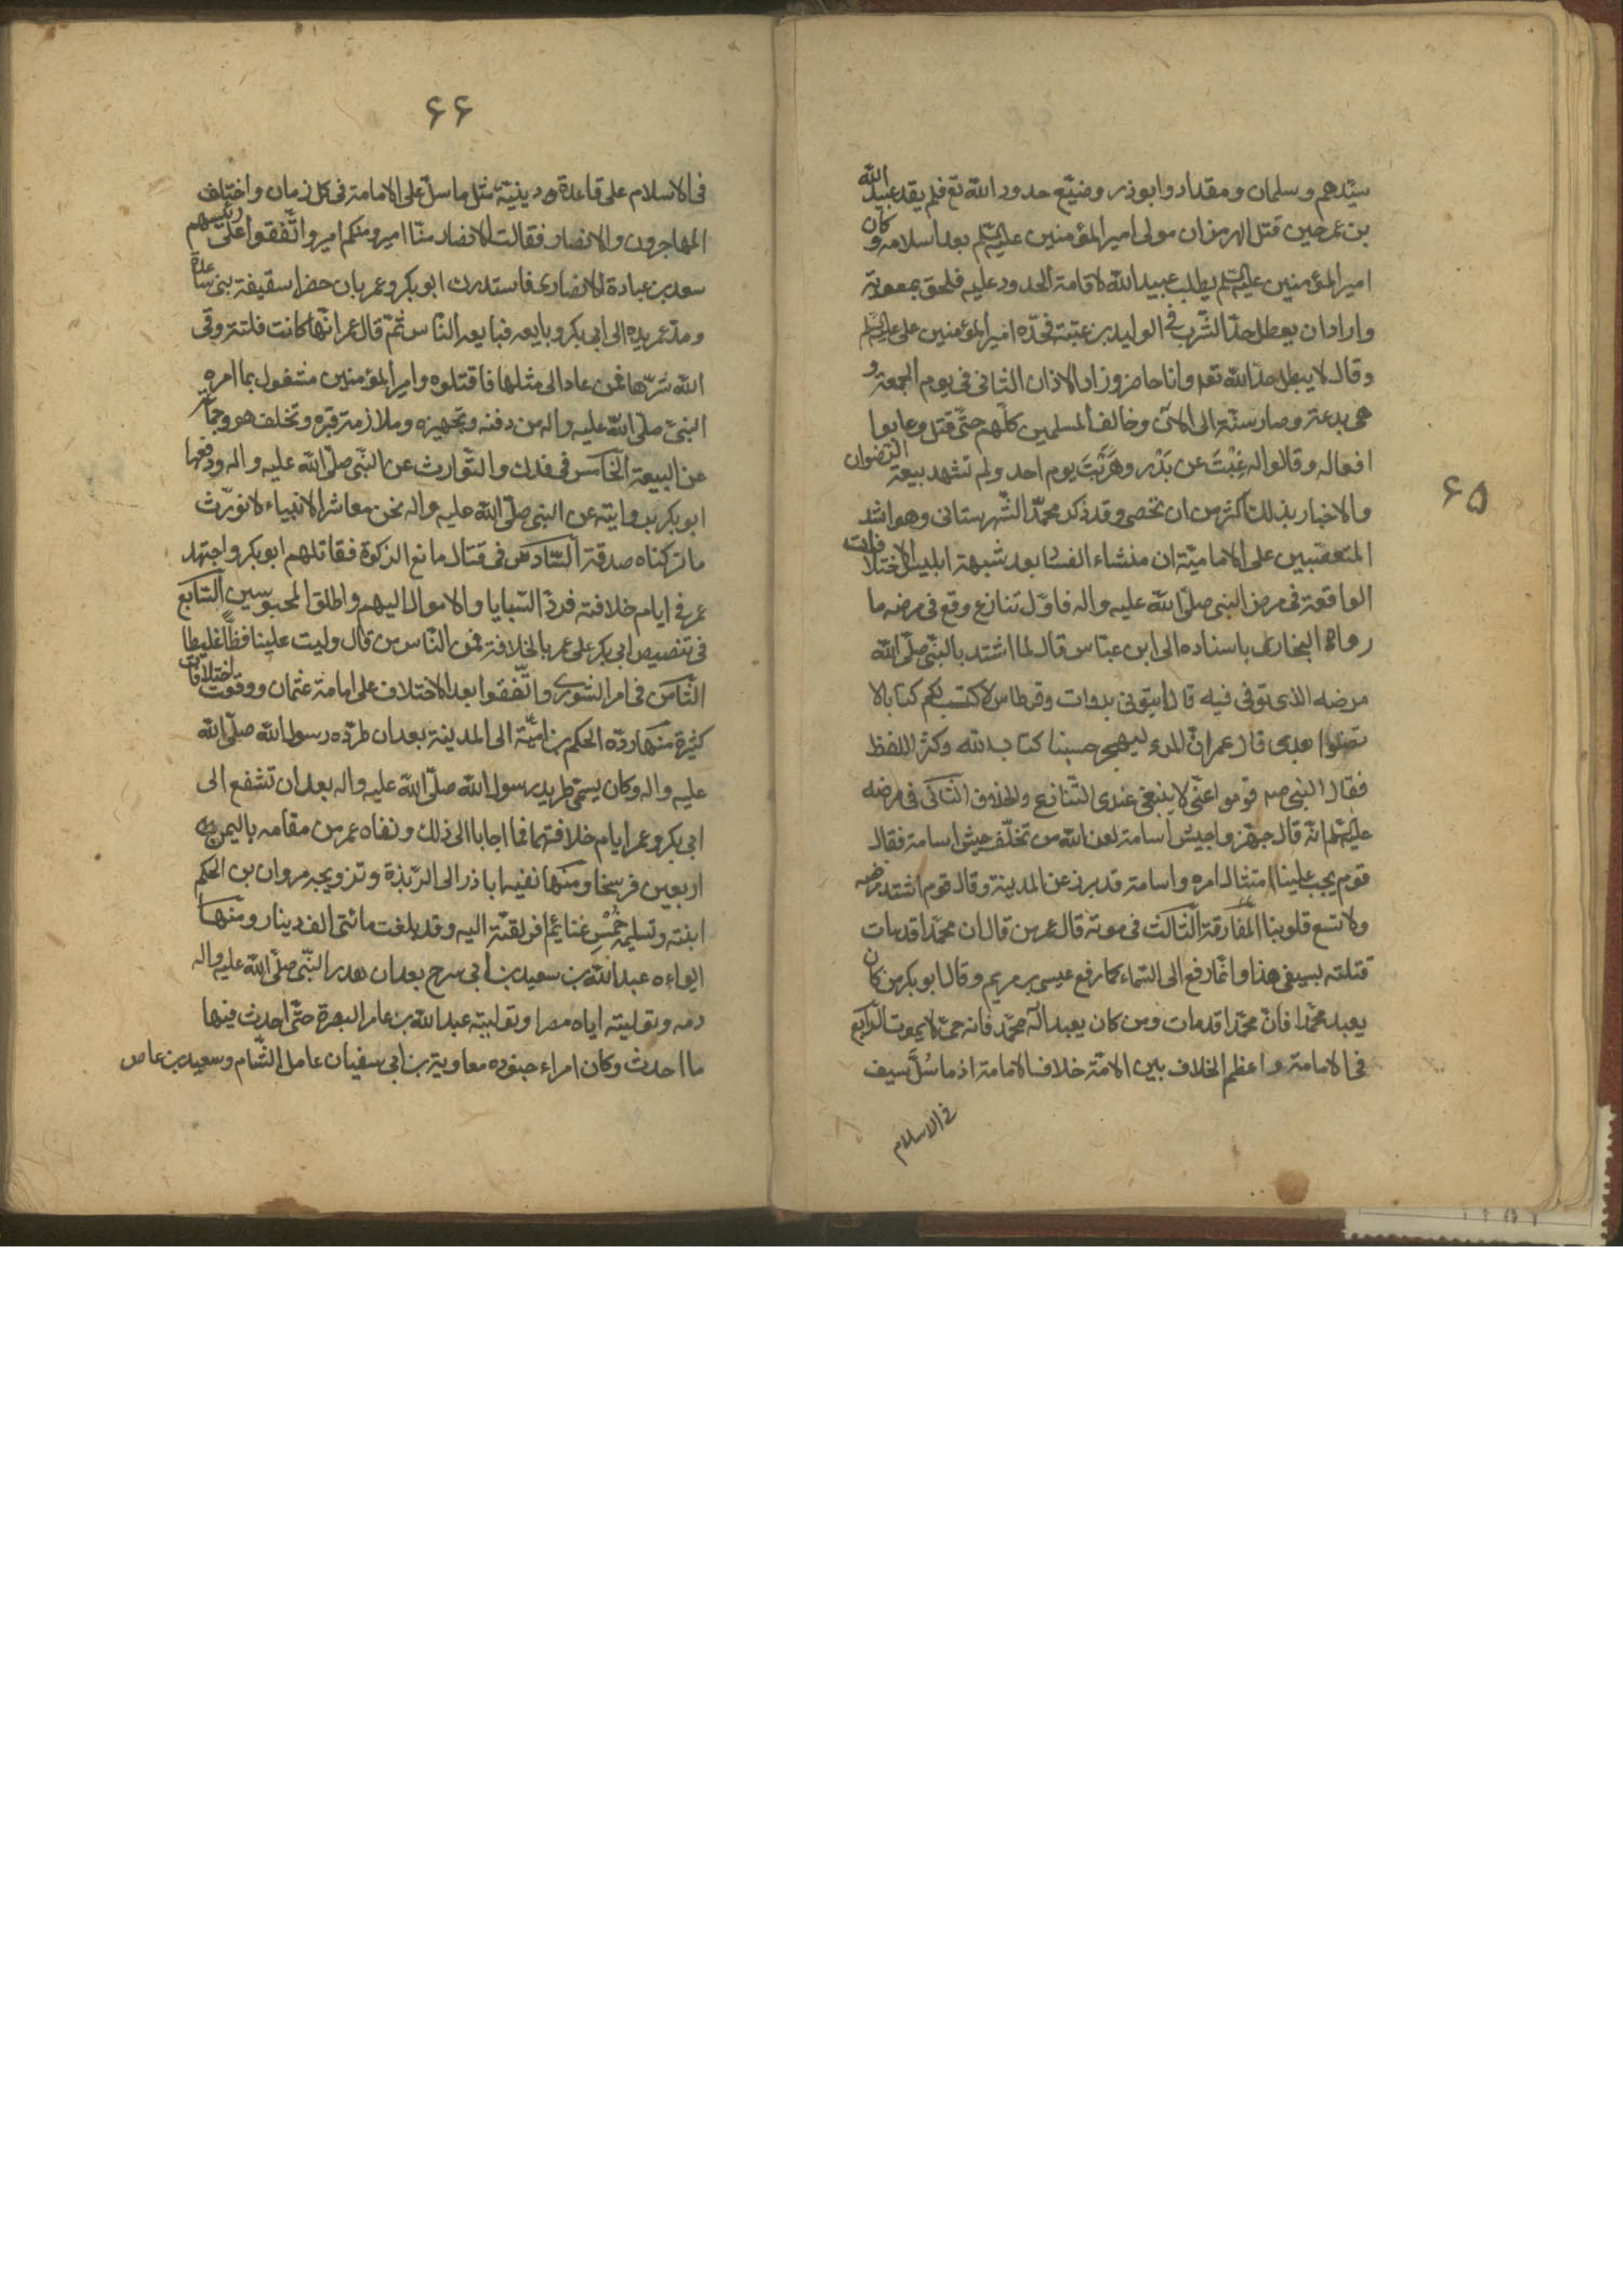 ۶۵
سيدهم وسلمان ومقداد وابوذر وضيّع حدود اللّه تع فلم يقد عبيد اللّه
بن عمر حين قتل الهرمزان مولى امير المؤمنين عليه السلم بعد اسلامه وكان
امير المؤمنين عليه السلم يطلب عبيد اللّه لاقامة الحدود عليه فلحق بمعوية
واراد ان يعطل حدّ الشّرب فى الوليد بن عتبة فحدّه امير المؤمنين على عليه السلم
وقال لا يبطل حدّ اللّه تعه وانا حاضر وزاد الاذان الثانى فى يوم الجمعة و
هى بدعة وصار سنّة الى الان وخالف المسلمين كلّهم حتّى قتل وعابوا
افعاله وقالوا له غِبْتَ عن بَدْر وهَرَبْتَ يوم احد ولم تشهد بيعة الرّضوان
والاخبار بذلك اكثر من ان تحصى وقد ذكر محمّد الشّهرستانى وهو اشد
المتعصّبين على الاماميّة ان منشاء الفساد بعد شبهة ابليس الاختلافات
الواقعة فى مرض النبى صلّى اللّه عليه واله فاوّل تنازع وقع فى مرضه ما
رواه البخارى باسناده الى ابن عبّاس قال لما اشتد بالنّبى صلّى اللّه
مرضه الذى توفى فيه قال ايتونى بدوات وقرطاس لاكتب لكم كتابا لا
تضلوا بعدى قال عمر انّ المرء ليهجر حسبنا كتاب اللّه وكثر اللفظ
فقال النبى صم قوموا عنّى لا ينبغى عندى التّنازع والخلاف الثّانى فى مرضه
عليه السلم انّه قال جهّزوا جيش اسامة لعن اللّه من تخلّف جيش اسامة فقال
قوم يجب علينا امتثال امره واسامة قد برز عن المدينة وقال قوم اشتد مرضه
ولا تسع قلوبنا المفارقة الثّالث فى موته قال عمر من قال ان محمّدا قد مات
قتلته بسيفى هذا وانّما رفع الى السّماء كما رفع عيسى بن مريم وقال ابو بكر من كان
يعبد محمّدا فانّ محمّدا قد مات ومن كان يعبد اله محمّد فانه حىّ لا يموت الرّابع
فى الامامة واعظم الخلاف بين الامّة خلاف الامامة اذ ما سُلّ سيف
فى الاسلام
۶۶
فى الاسلام على قاعدة دينيّة مثل ما سلّ على الامامة فى كل زمان واختلف
المهاجرون والانصار فقالت الانصار منّا امير ومنكم امير واتّفقوا على رئيسهم
سعد بن عبادة الانصارى فاستدرك ابو بكر وعمر بان حضرا سقيفة بنى ساعدة
ومدّ عمر يده الى ابى بكر وبايعه فبايعه النّاس ثمّ قال عمر انّها كانت فلتة وقى
اللّه شرّها فمن عاد الى مثلها فاقتلوه وامير المؤمنين مشغول بما امره
النبىّ صلّى اللّه عليه واله من دفنه وتجهيزه وملازمة قبره وتخلف هو وجماعة
عن البيعة الخامس فى فدك والتّوارث عن النّبى صلّى اللّه عليه واله ودفعها
ابو بكر بروايته عن النبى صلّى اللّه عليه واله نحن معاشر الانبياء لا نورّث
ما تركناه صدقة السّادس فى قتال مانع الزكوة فقاتلهم ابو بكر واجتهد
عمر فى ايام خلافته فردّ السّبايا والاموال اليهم واطلق المحبوسين السّابع
فى تنصيص ابى بكر على عمر بالخلافة فمن النّاس من قال وليت علينا فظّا غليظا
الثّامن فى امر الشورى واتّفقوا بعد الاختلاف على امامة عثمان ووقعت اختلافات
كثيرة منها ردّه الحكم بن اميّة الى المدينة بعد ان طرّده رسول اللّه صلّى اللّه
عليه واله وكان يسمّى طريد رسول اللّه صلّى اللّه عليه واله بعد ان تشفع الى
ابى بكر وعمر ايام خلافتهما فما اجابا الى ذلك ونفاه عمر من مقامه باليمن
اربعين فرسخا ومنها نفيه اباذر الى الرّبذة وتزويجه مروان بن الحكم
ابنته وتسليمه خُمْسِ غنائم افريقيّة اليه وقد بلغت مائتى الف دينار ومنها
ايواءه عبد اللّه بن سعيد بن أبى سرح بعد ان هدر النّبى صلّى اللّه عليه واله
دمه وتوليته اياه مصرا وتوليته عبد اللّه بن عامر البصرة حتّى احدث فيها
ما احدث وكان امراء جنوده معاوية بن ابى سفيان عامل الشّام وسعيد بن عاص